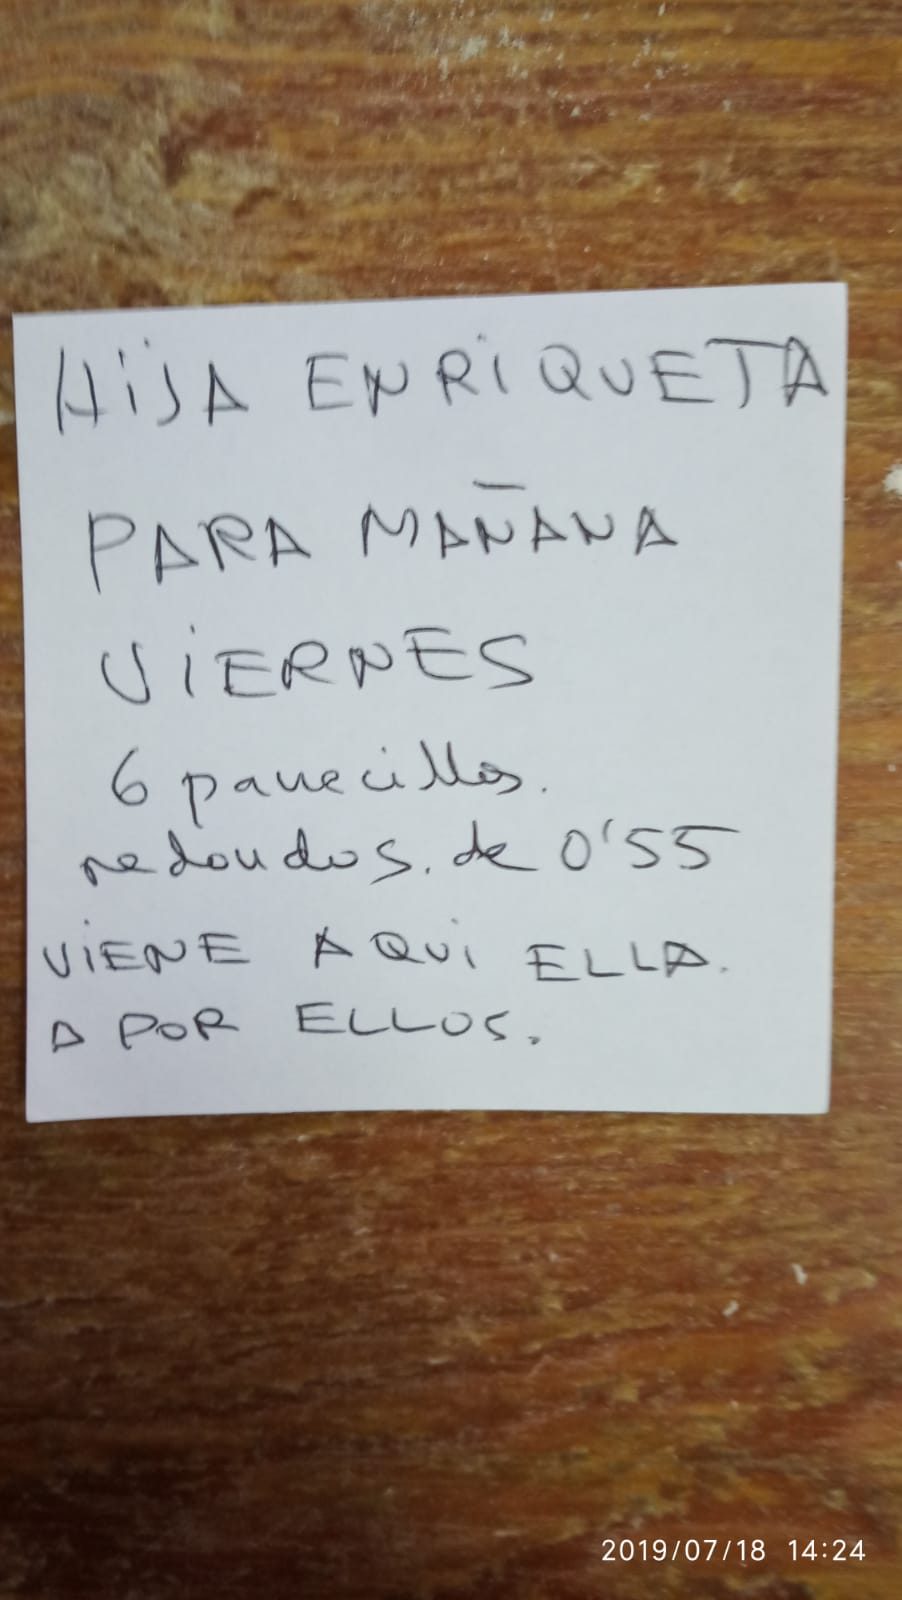 HiJA ENRiQUETA
PARA MAÑANA
ViERNES
6 panecillos.
redondos. de 0'55
ViENE AQUi ELLA.
A POR ELLOS.
2019/07/18 14:24